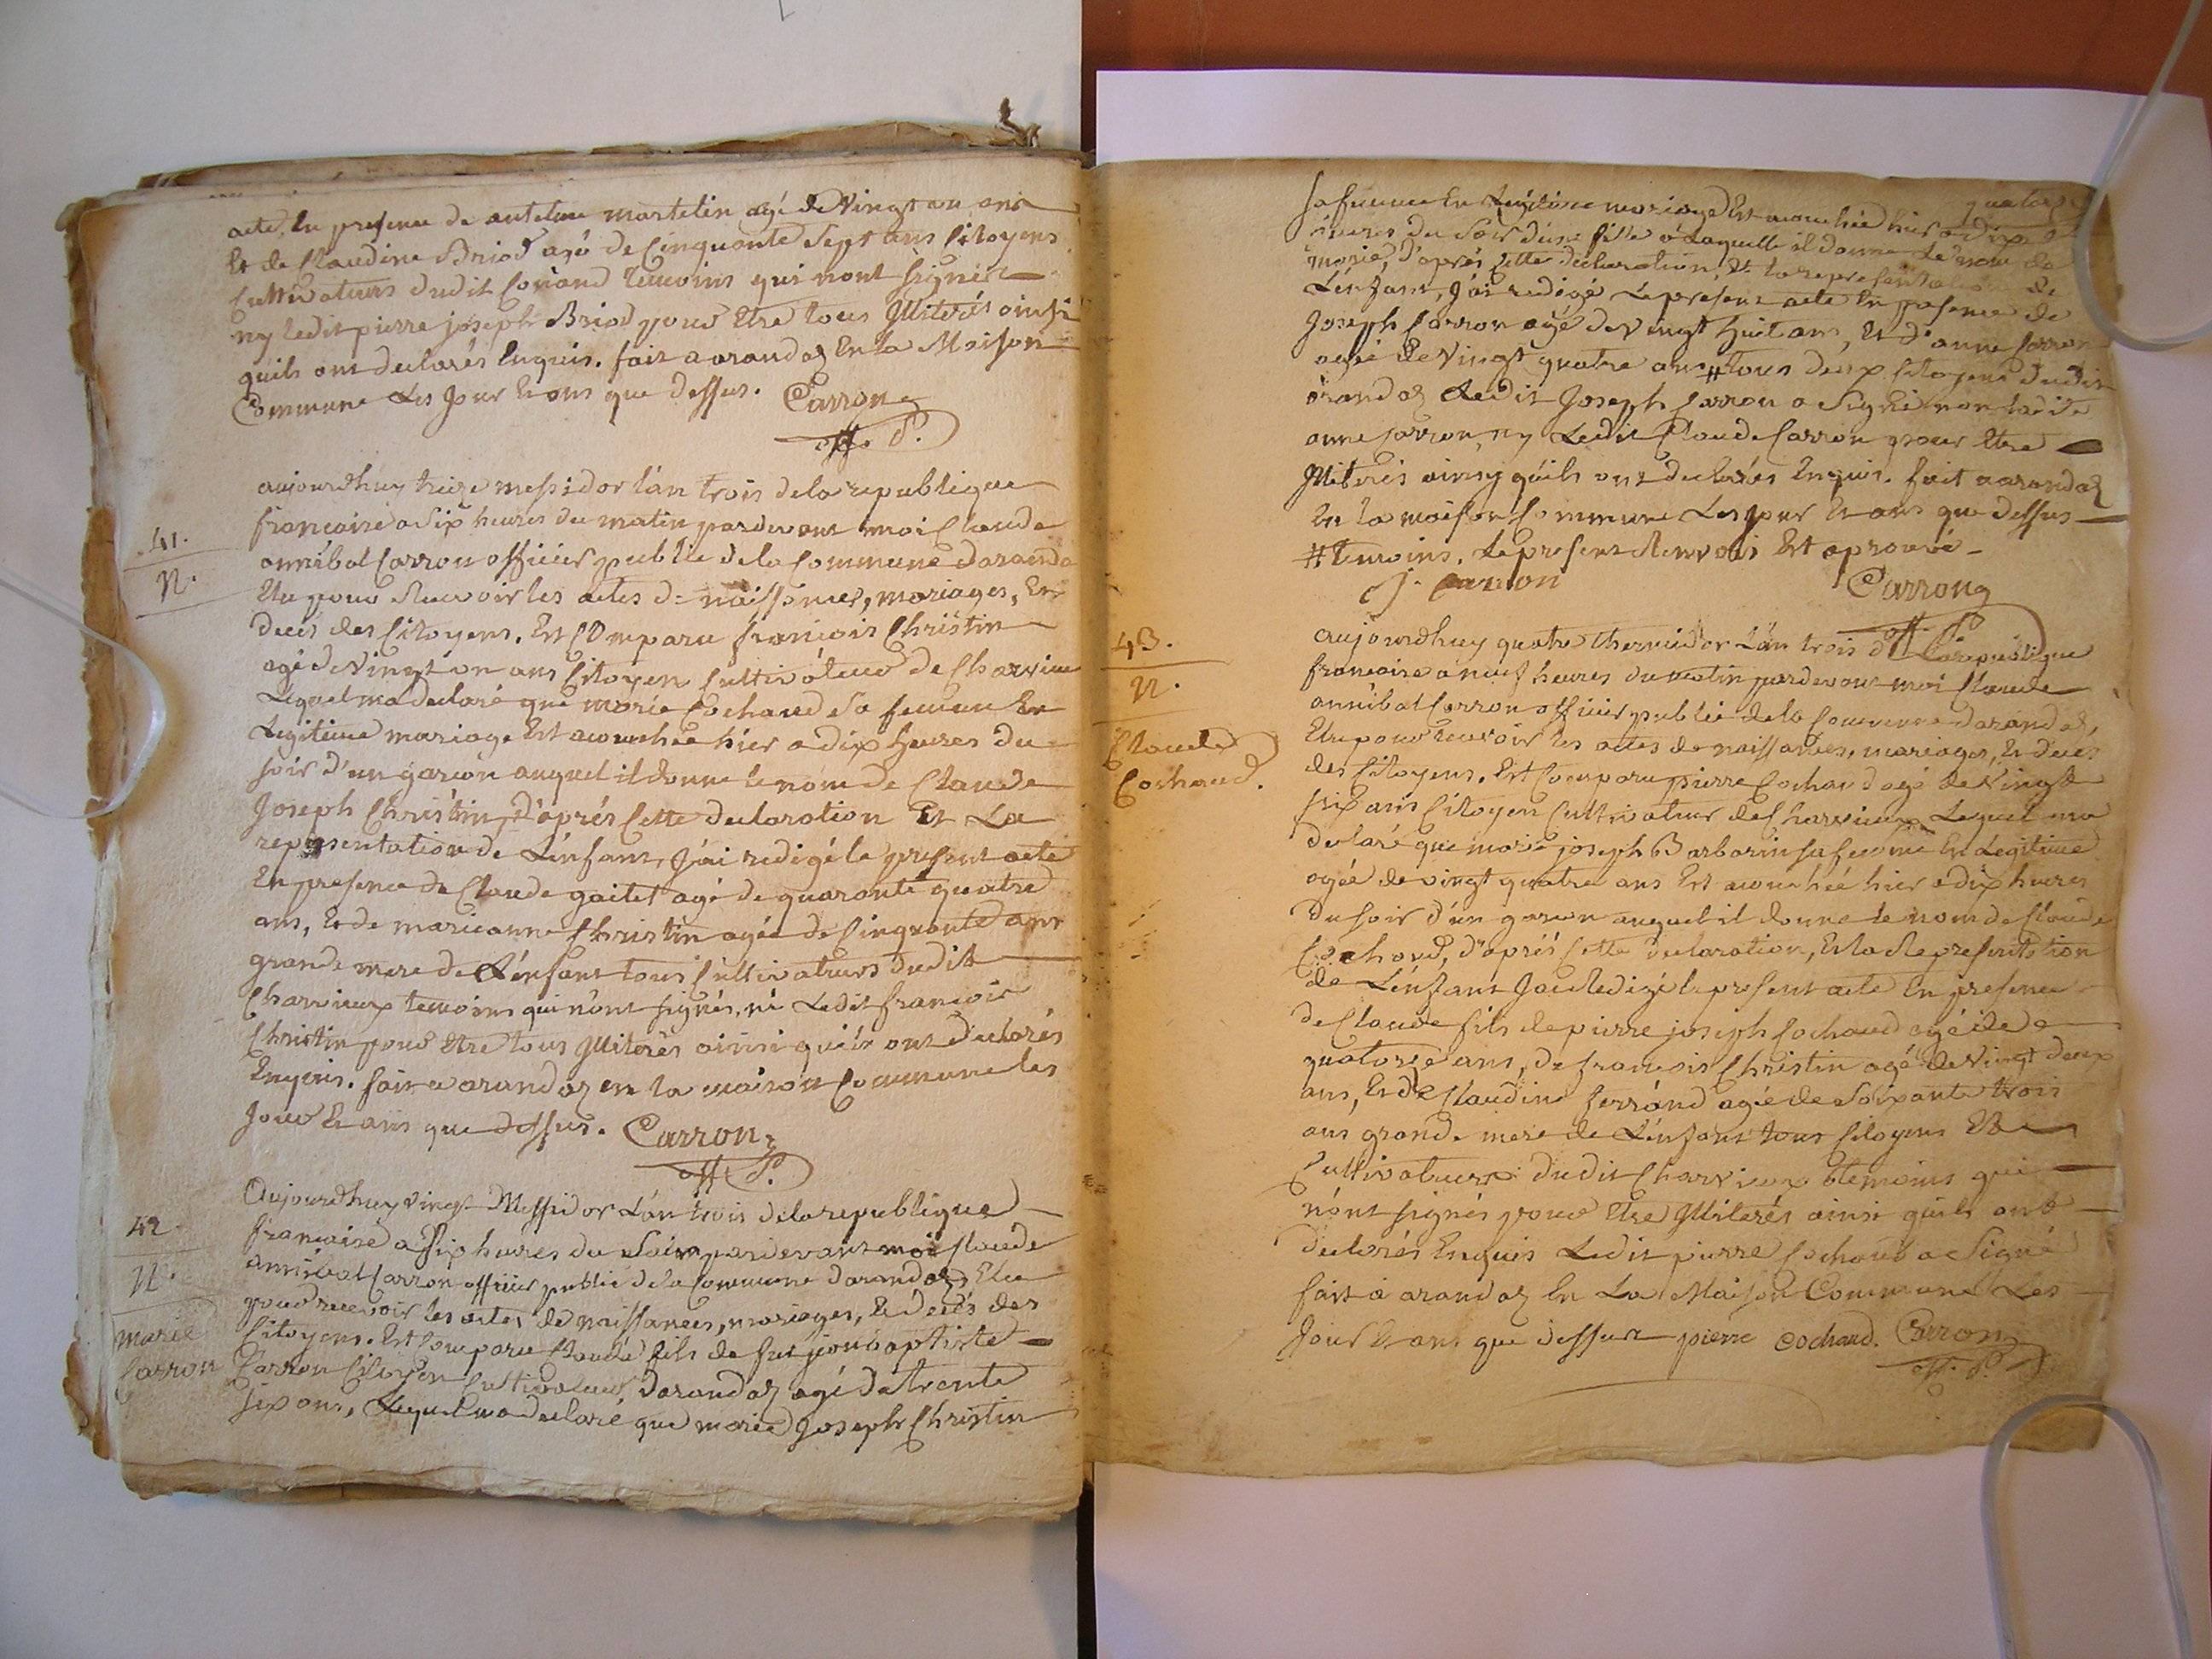 acte, En presence de antelme martelin agé de Vingt un ans
Et de Claudine Briod agé de Cinquante Sept ans Citoyens
Cultivateurs dudit Conand temoins qui nont signés
ny ledit pierre joseph Briod pour Etre tous Illiterés ainsi
quils ont declarés Enquis. fait a arandaz En la Maison
Commune Les Jour Et ans que dessus. Carron
off. P.
41.
N.
aujourdhuy treize messidor lán trois dela republique
francaise a Six heures du matin pardevant moi Claude
annibal Carron officier public dela Commune daranda
Elu pour Recevoir les actes de naissances, mariages, Et
decés des Citoyens. Est Comparu francois Christin
agé de Vingt un ans Citoyen Cultivateur de Charvieux
Lequel ma declaré que marie Cochaud Sa femme En
Legitime mariage Est acouchée hier a dix heures du
soir d'un garcon auquel il donne le nom de Claude
Joseph Christin, d'aprés Cette declaration Et La
representation de Lénfant, J'ai redigé le present acte
En presence de Claude gaitet agé de quarante quatre
ans, Et de marieanne Christin agée de Cinquante ans
grande mere de Lénfant tous Cultivateurs dudit
Charvieux temoins qui nónt signés, ni Ledit francois
Christin pour Etre tous Illiterés ainsi quils ont declarés
Enquis. fait a arandaz en la maison Commune les
Jour Et ans que dessus. Carron
off P.
42.
N.
marie
Carron
Aujourdhuy vingt Messidor Lán trois dela republique
francaise a Six heures du Soir pardevant moi Claude
annibal Carron officier public dela Commune darandaz, Elu
pour recevoir les actes de naissances, mariages, Et decés des
Citoyens. Est Comparu Claude fils de feu jean baptiste
Carron Citoyen Cultivateur darandaz agé de trente
six ans, Lequel ma declaré que marie Joseph Christin
Sa femme En Legitime mariage Est acouchée hier a dix
heures du Soir d'une fille a Laquelle il donne Le nom de
marie, d'aprés Cette declaration, Et la representation de
Lénfant, J'ai redigé Le present acte En presence de
Joseph Carron agé de vingt huit ans, Et d'anne Carron
agée de Vingt quatre ans # tous deux Citoyens dudit
arandaz Ledit Joseph Carron a Signé non ladite
anne Carron, ny Ledit Claude Carron pour Etre
Illiterés ainsy quils ont declarés Enquis. fait a arandaz
En la maison Commune Les jour Et ans que dessus
# temoins. Le present Renvoi Est aprouvé
J. Carron Carron
off. P.
43.
N.
Claude
Cochaud.
aujourdhuy quatre thermidor Lán trois de La republique
francaise a neuf heures du matin pardevant moi Claude
annibal Carron officier public dela Commune darandaz,
Elu pour recevoir les actes de naissances, mariages, Et decés
des Citoyens. Est Comparu pierre Cochaud agé de Vingt
six ans Citoyen Cultivateur de Charvieux Lequel ma
declaré que marie joseph Barbarin sa femme En Legitime
agée de vingt quatre ans Est acouchée hier a dix heures
du soir d'un garcon auquel il donne le nom de Claude
Cochaud, d'aprés Cette declaration, Et la Representation
de Lénfant J'ai Redigé le present acte En presence
de Claude fils de pierre joseph Cochaud agé de
quatorze ans, de francois Christin agé de Vingt deux
ans, Et de Claudine ferrand agée de Soixante trois
ans grande mere de Lénfant tous Citoyens Et
Cultivateurs dudit Charvieux temoins qui
nónt signés pour Etre Illiterés ainsi quils ont
declarés Enquis Ledit pierre Cochaud a Signé
fait a arandaz En La Maison Commune Les
Jour Et ans que dessus pierre cochaud. Carron
off. P.